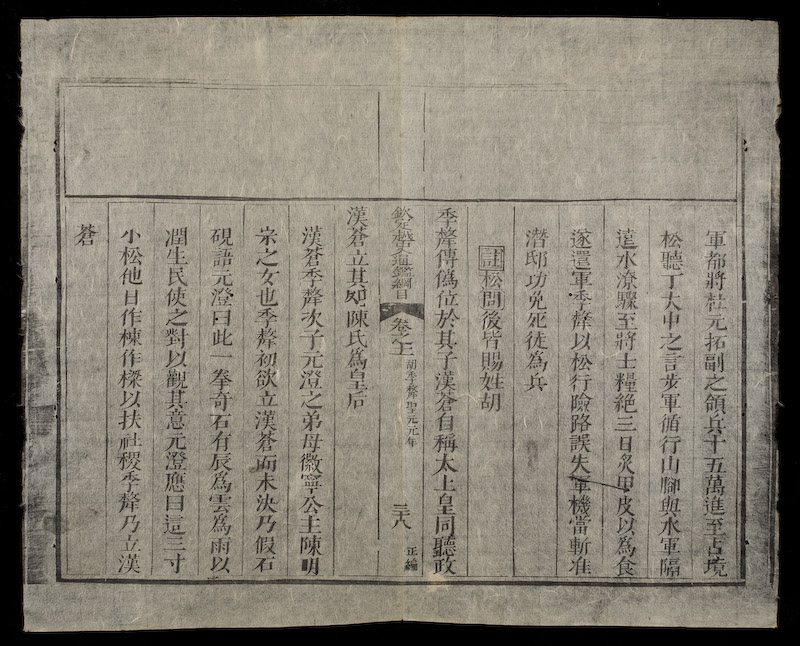 軍都將杜元拓副之領兵十五萬進至占境
松聽丁大中之言步軍循行山腳與水軍隔
遠水潦驟至將士糧絕三日炙甲皮以為食
遂還軍季犛以松行險路誤失軍機當斬准
潛邸功免死徒為兵
註松問後皆賜姓胡
季犛傳偽位於其子漢蒼自稱太上皇同聽政
欽定越史通鑑綱目 卷之十一 胡季犛聖元元年 三八 正編
漢蒼立其妃陳氏為皇后
漢蒼季犛次子元澄之弟母徽寧公主陳明
宗之女也季犛初欲立漢蒼而未決乃假石
硯語元澄曰此一拳奇石有辰為雲為雨以
潤生民使之對以觀其意元澄應曰這三寸
小松他日作棟作樑以扶社稷季犛乃立漢
蒼